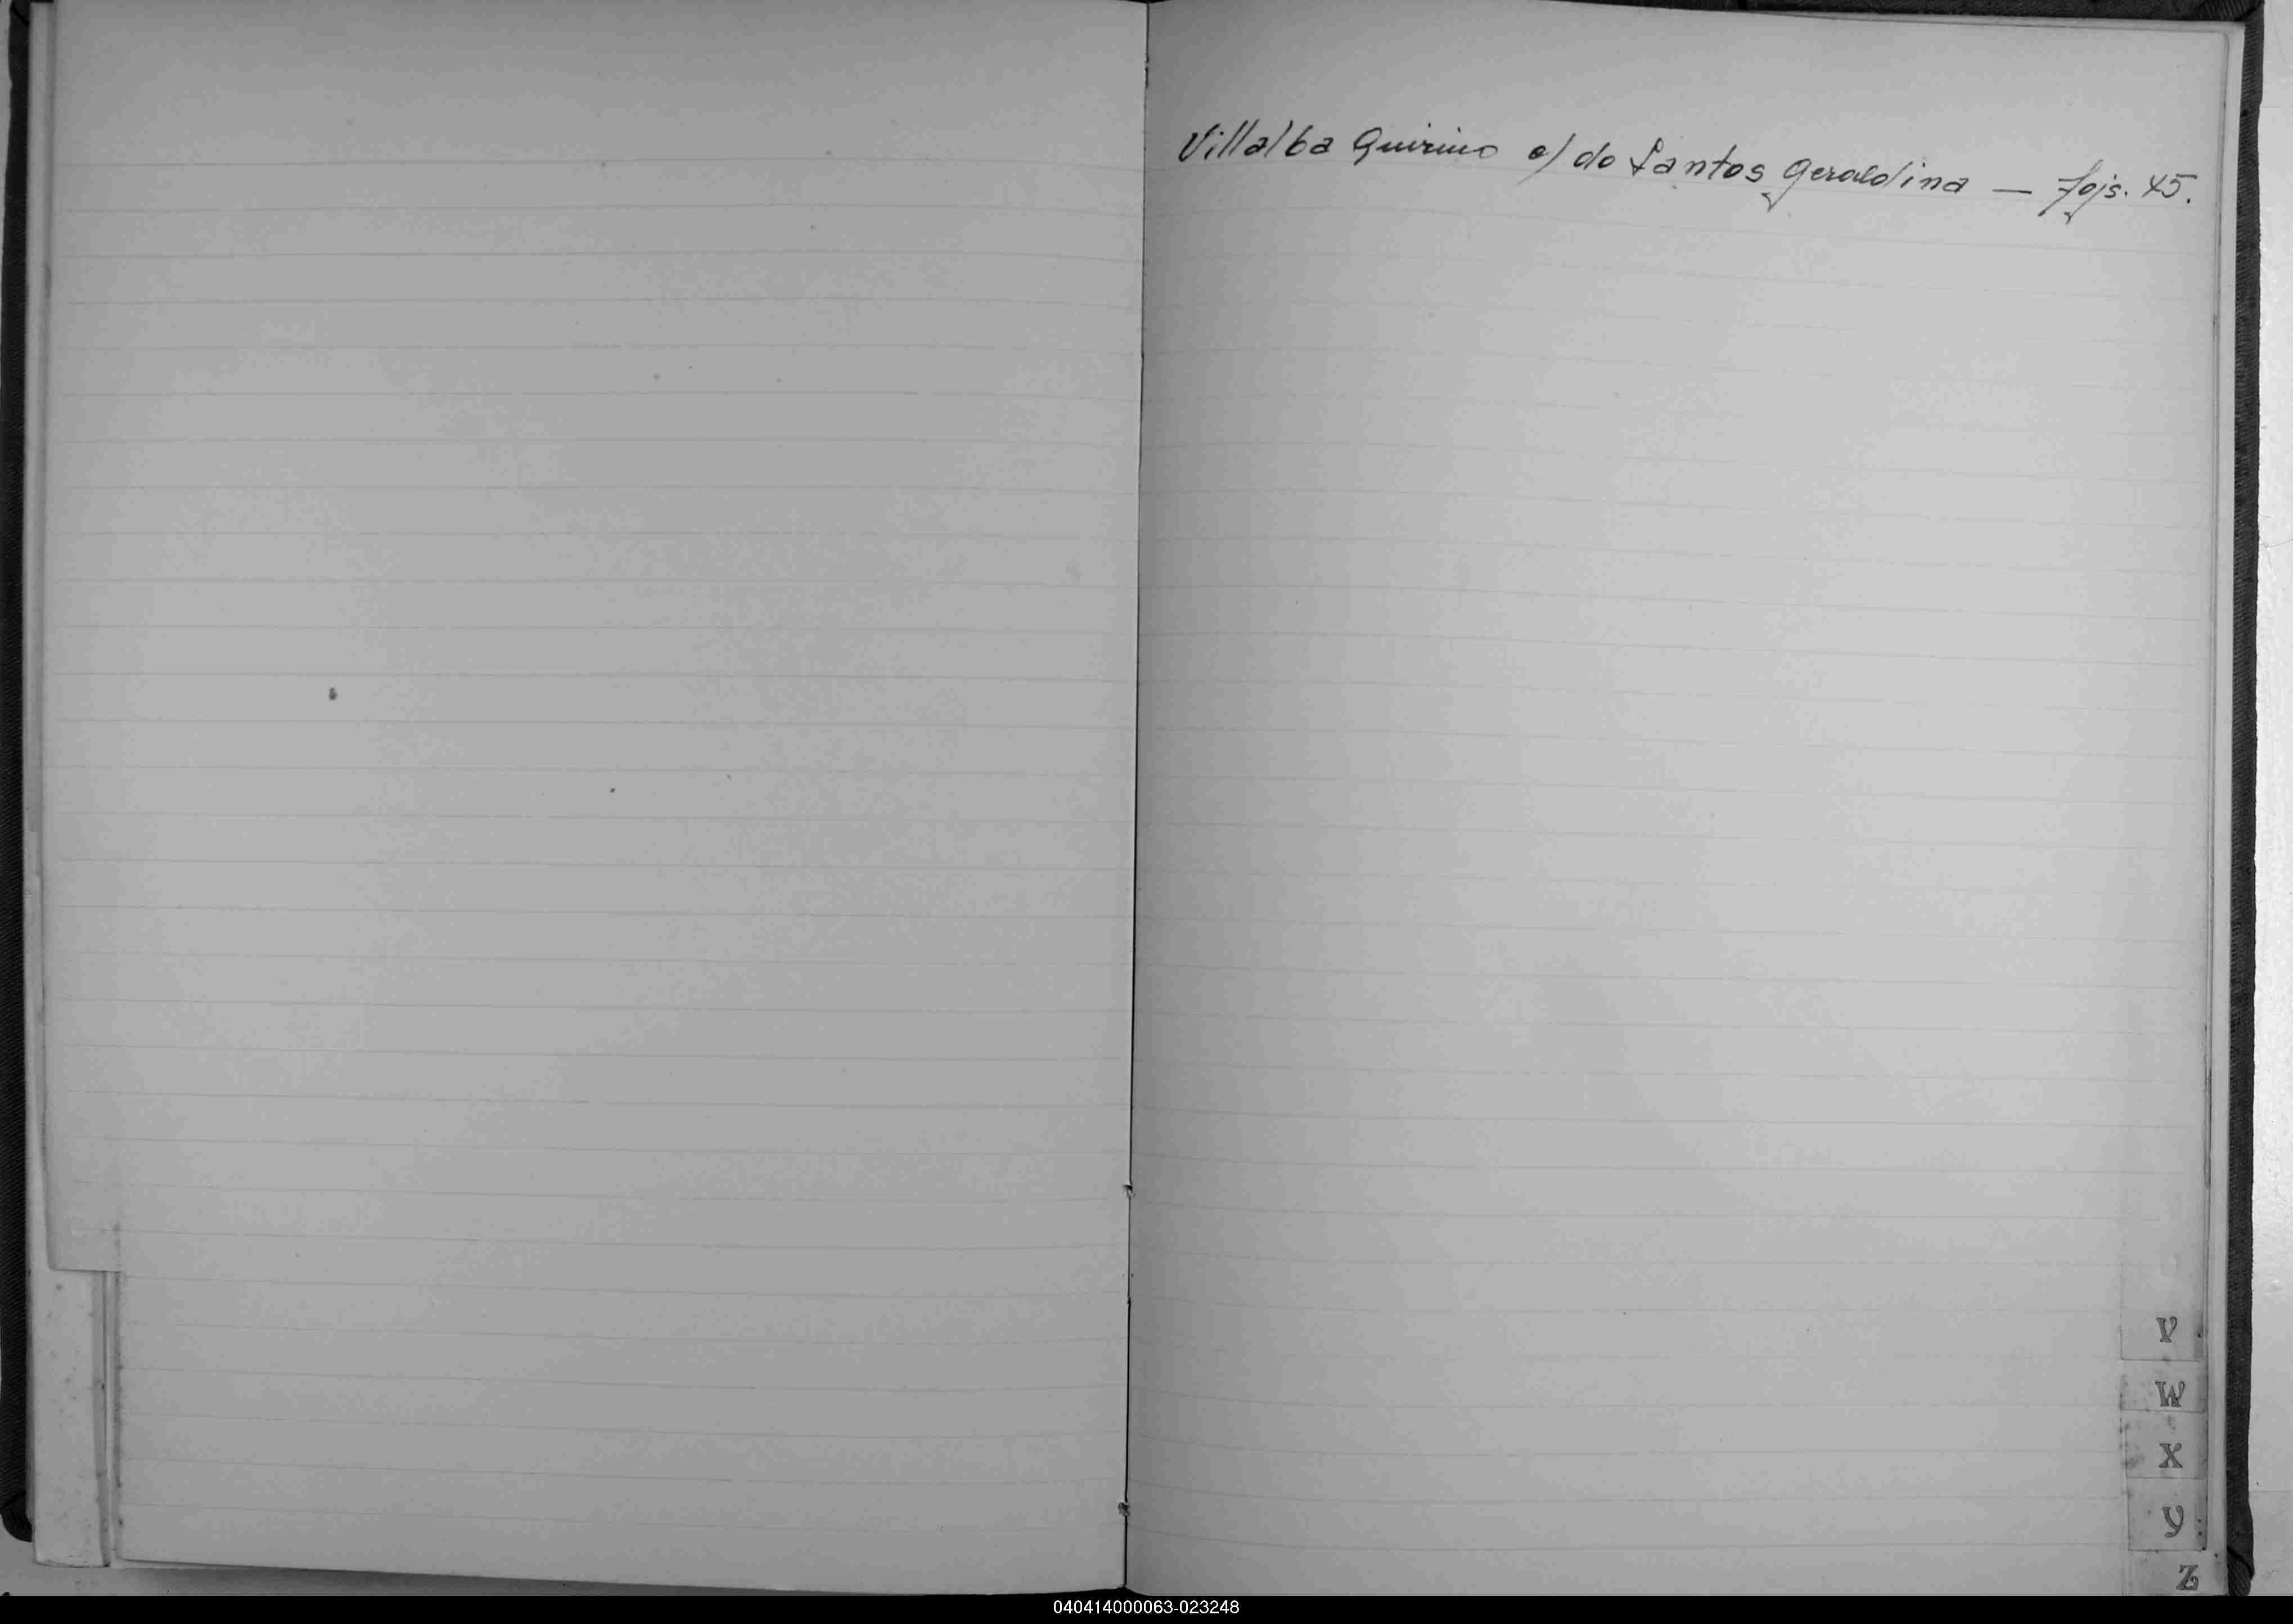 Villalba Quirino c/ do Santos Geraldina — fojs. 45.
V
W
X
Y
Z
040414000063-023248